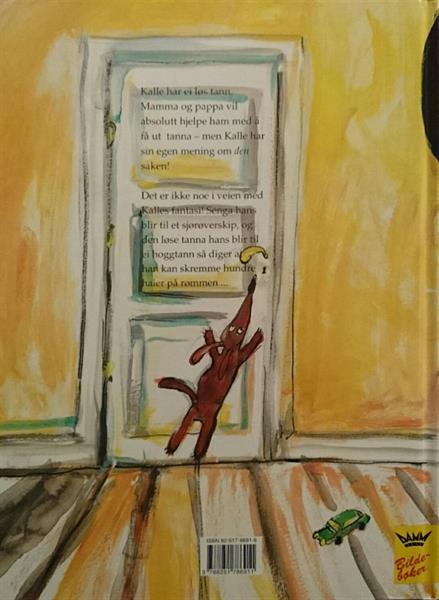 Kalle har ei løs tann.
Mamma og pappa vil
absolutt hjelpe ham med å
få ut tanna – men Kalle har
sin egen mening om den
saken!
Det er ikke noe i veien med
Kalles fantasi! Senga hans
blir til et sjørøverskip, og
den løse tanna hans blir til
ei hoggtann så diger a
han kan skremme hundre
haier på rømmen ...
ISBN 82-517-8691-8
9 788251 786911
DAMM
Bilde-
bøker